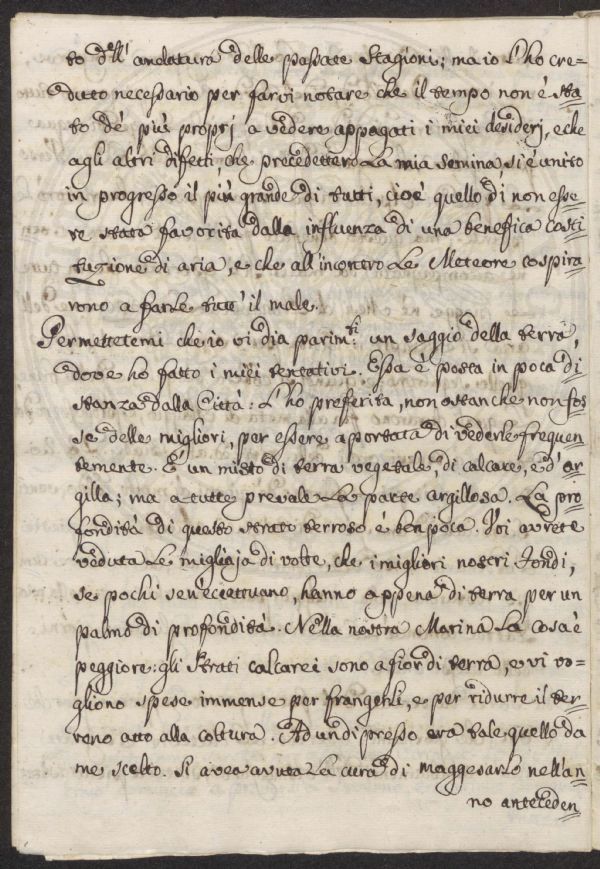 to dell'andatura delle passate Stagioni; ma io l'ho cre=
duto necessario per farvi notare che il tempo non è sta=
to de' più proprj a vedere appagati i miei desiderj, e che
agli altri difetti, che precedettero la mia semina, si è unito
in progresso il più grande di tutti, cioè quello di non esse=
re stata favorita dalla influenza di una benefica costi=
tuzione di aria, e che all'incontro le Meteore cospira=
rono a farle tutt'il male.
Permettetemi che io vi dia parim.ti un saggio della terra,
dove ho fatto i miei tentativi. Essa è posta in poca di=
stanza dalla Città: l'ho preferita, non ostanche non fos=
se delle migliori, per essere a portata di vederle frequen=
temente. È un misto di terra vegetale, di calcare, e d'ar=
gilla; ma a tutte prevale la parte argillosa. La pro=
fondità di questo strato terroso è ben poca. Voi avrete
veduta le migliaja di volte, che i migliori nostri fondi,
se pochi se n'eccettuano, hanno appena di terra per un
palmo di proffondità. Nella nostra Marina la cosa è
peggiore: gli strati calcarei sono a fior di terra, e vi vo=
gliono spese immense per frangerli, e per ridurre il ter=
reno atto alla coltura. Ad un dipresso era tale quello da
me scelto. Si avea avuta la cura di maggesarlo nell'an=
no anteceden=